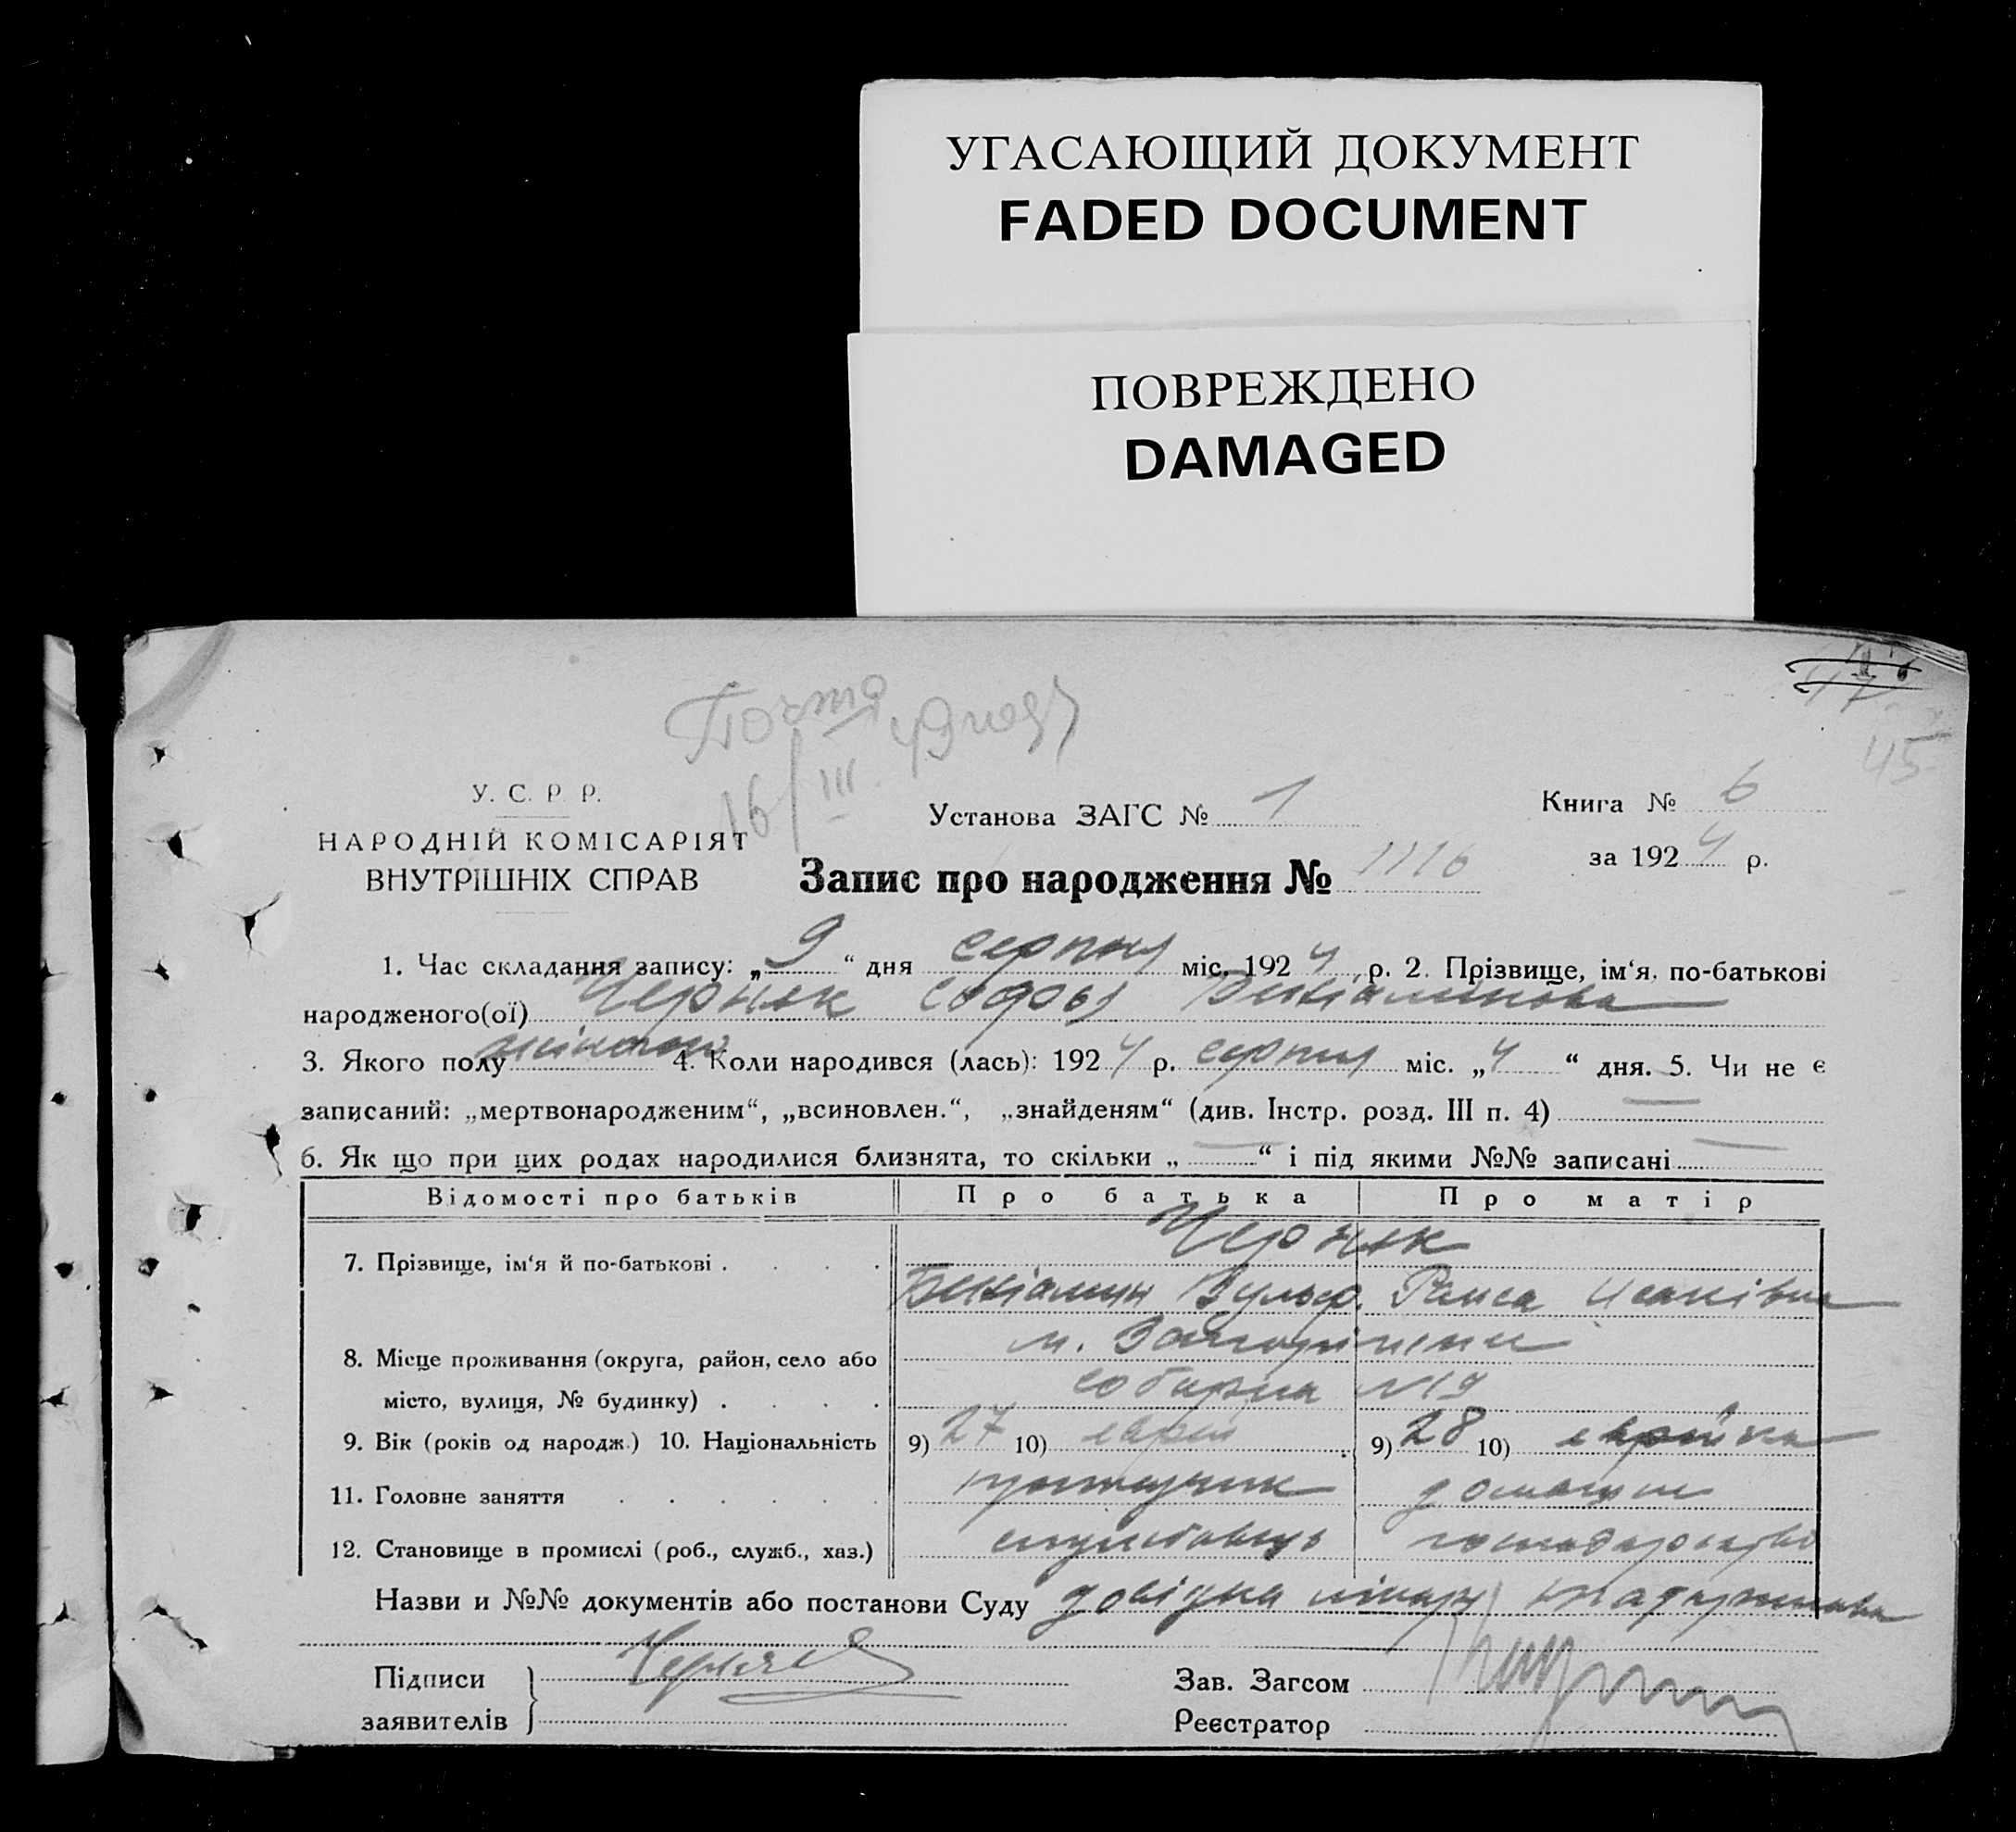 УГАСАЮЩИЙ ДОКУМЕНТ
FADED DOCUMENT
ПОВРЕЖДЕНО
DAMAGED
45
16/III
У. С. Р. Р.
НАРОДНІЙ КОМІСАРІЯТ
ВНУТРІШНІХ СПРАВ
Установа ЗАГС № 1
Книга № 6
за 1924 р.
Запис про народження № 1116
1. Час складання запису: „9“ дня серпня міс. 1924 р. 2. Прізвище, ім‘я, по-батькові
народженого(ої) Черняк Софья Бениаминовна
3. Якого полу жіночого 4. Коли народився (лась): 1924 р. серпня міс. „4“ дня. 5. Чи не є
записаний: „мертвонародженим“, „всиновлен.“, „знайденям“ (див. Інстр. розд. III п. 4) —
6. Як що при цих родах народилися близнята, то скільки „—“ і під якими №№ записані —
Відомості про батьків Про батька Про матір
7. Прізвище, ім‘я й по-батькові . Черняк
Бениамин Вульф. Раиса Исаківна
8. Місце проживання (округа, район, село або м.
місто, вулиця, № будинку) . Соборна №19
9. Вік (років од народж.) 10. Національність 9) 27 10) еврей 9) 28 10) еврейка
11. Головне заняття
12. Становище в промислі (роб., служб., хаз.) службовець господарство
Назви и №№ документів або постанови Суду довідка
Підписи
заявителів
Черняк
Зав. Загсом
Реєстратор